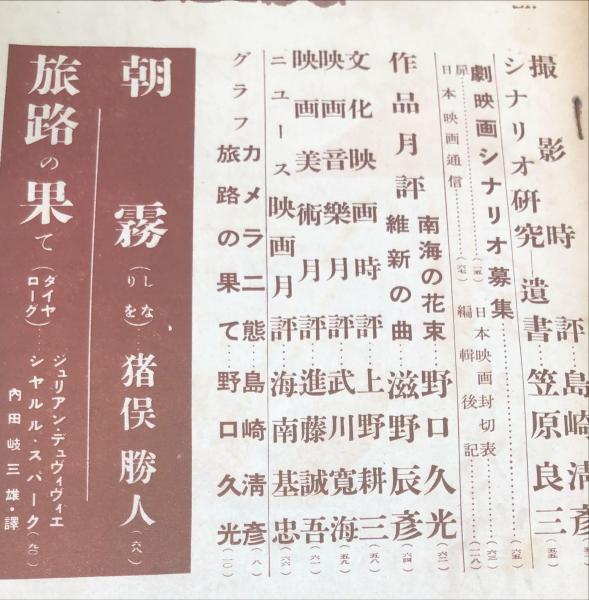 撮影時評…島崎清彦
シナリオ研究—遺書…笠原良三（五五）
劇映画シナリオ募集………（六五）
扉………日本映画封切表………（六三）
日本映画通信………編輯後記………（一一八）
南海の花束…野口久光（六二）
作品月評
維新の曲…滋野辰彦（六四）
文化映画時評…上野耕三（五八）
映画音樂月評…武川寛海（五九）
映画美術月評…進藤誠吾（六一）
ニュース映画月評…海南基忠（六六）
カメラ二態…島崎清彦（八）
グラフ
旅路の果て…野口久光（一〇）
朝霧（しなりを）…猪俣勝人（六八）
旅路の果て（ダイヤローグ）…ジュリアン・デュヴィヴィエ
シヤルル・スパーク（九〇）
内田岐三雄・譯